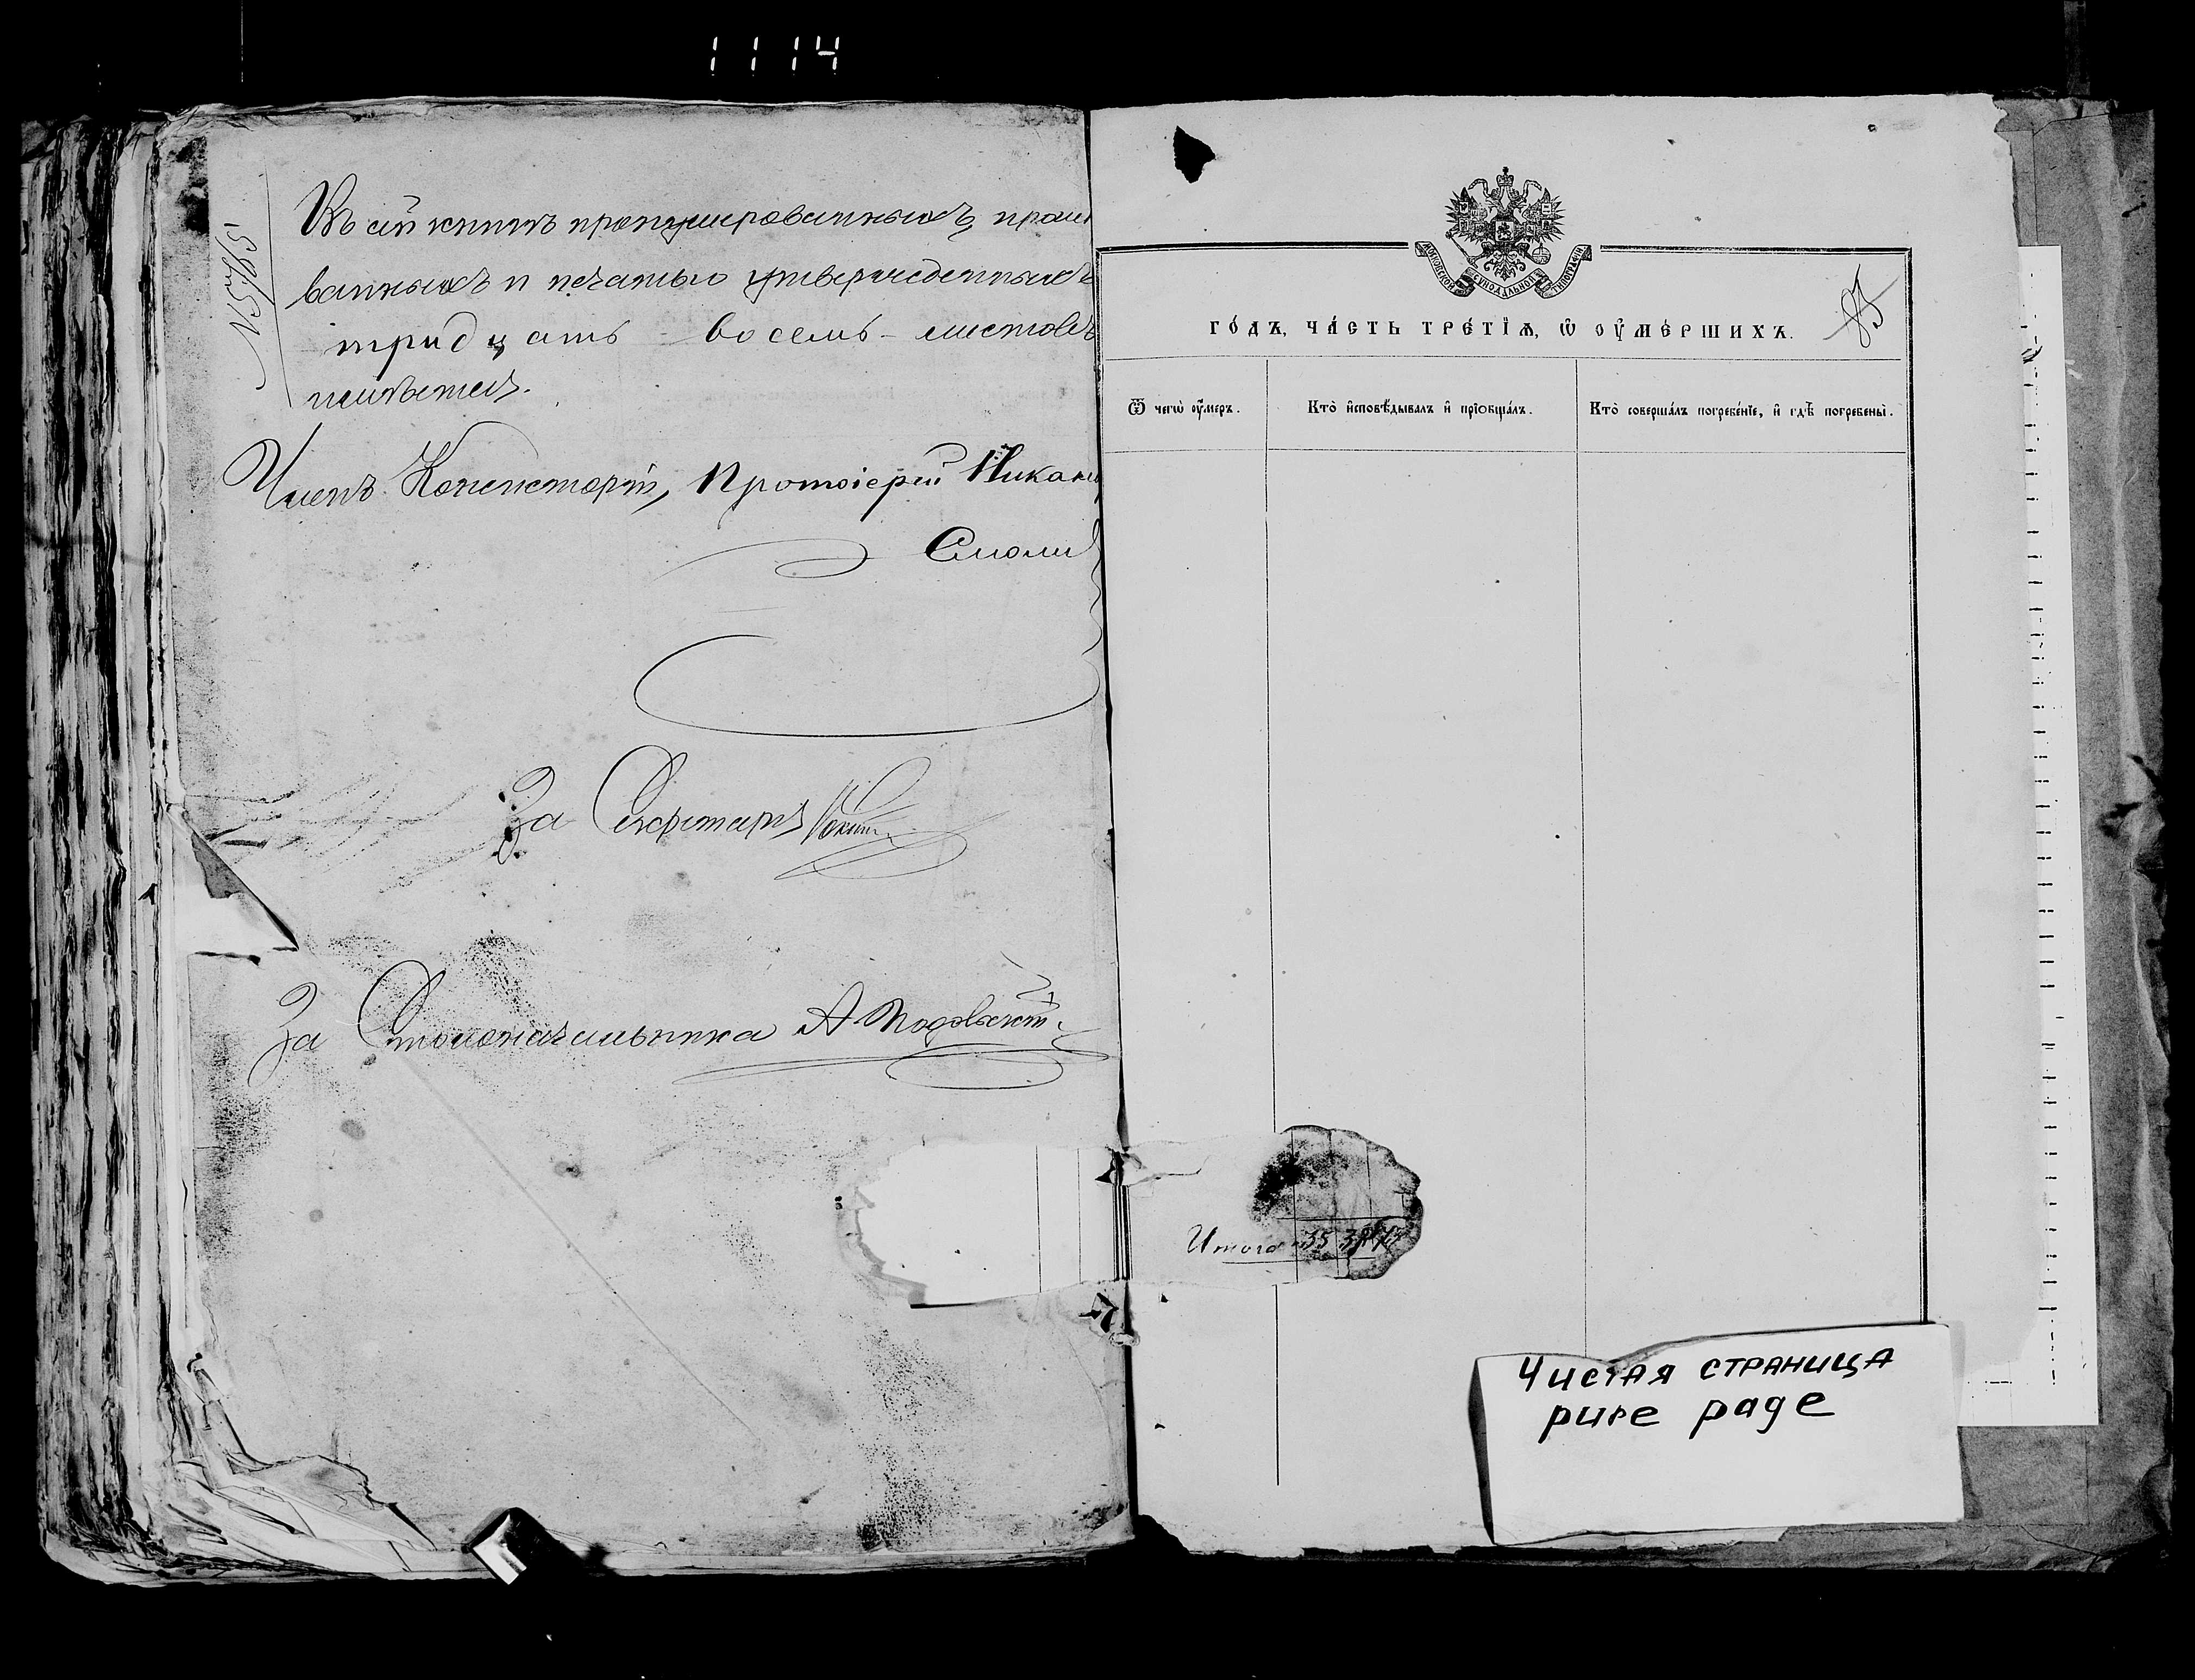 1114
Въ сей книгѣ пронумерованныхъ, прошну
ванныхъ и печатью утвержденныхъ
тридцать восемь листовъ
имѣется.
Членъ Консисторіи, Протоіерей Никано
Смоли
За Секретаря
За Столоначальника А
МОСКОВСКОЙ СѴНОДАЛЬНОЙ ТИПОГРАФІИ
ГО́ДЪ, ЧА́СТЬ ТРЕ́ТІѦ, Ѡ҆ ОУ҆МЕ́РШИХЪ.
85
Ѿ чегѡ̀ оу҆́меръ.
Кто̀ и҆сповѣ́дывалъ и҆ прїѻбща́лъ.
Кто̀ соверша́лъ погребе́нїе, и҆ гдѣ̀ погребены̀.
Итого 35
Чистая страница
pure page